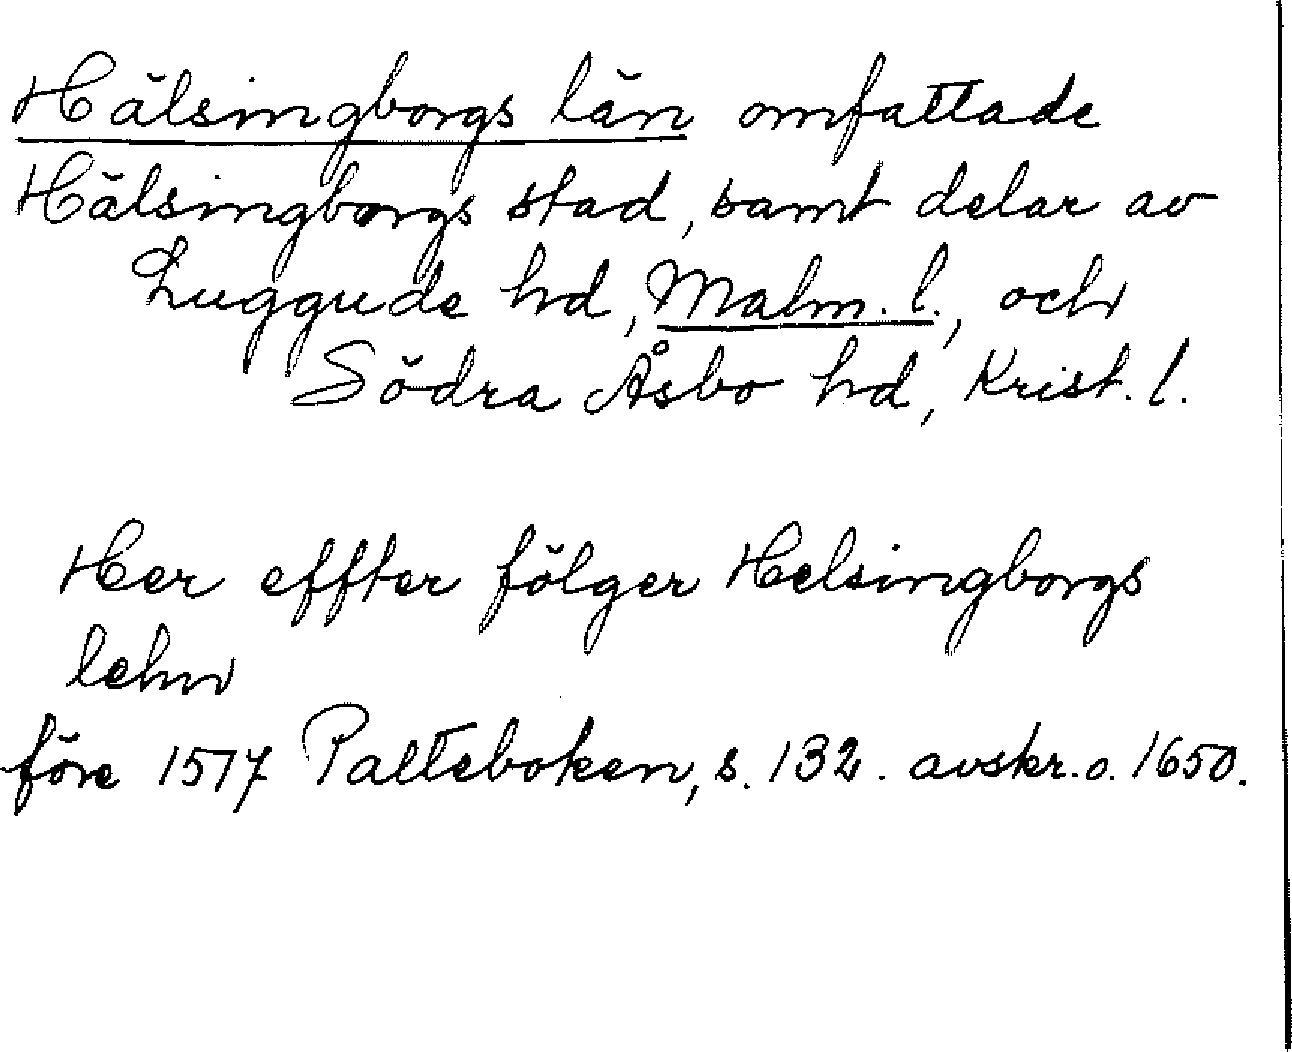 Hälsingborgs län omfattade
Hälsingborgs stad, samt delar av
Luggude hd, Malm. l., och
Södra Åsbo hd, Krist. l.
Her effter fölger Helsingborgs
lehn
före 1517 Palteboken, s. 132. avskr. o. 1650.